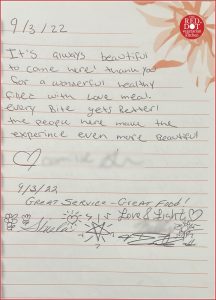 9/3/22
RED DOT
VEGETARIAN
KITCHEN
It's always beautiful
to come here! thank you
for a wonderful healthy
filled with Love meal.
every Bite gets Better!
the people here make the
experience even more Beautiful
9/3/22
GREAT SERVICE - GREAT FOOD!
Love & Light